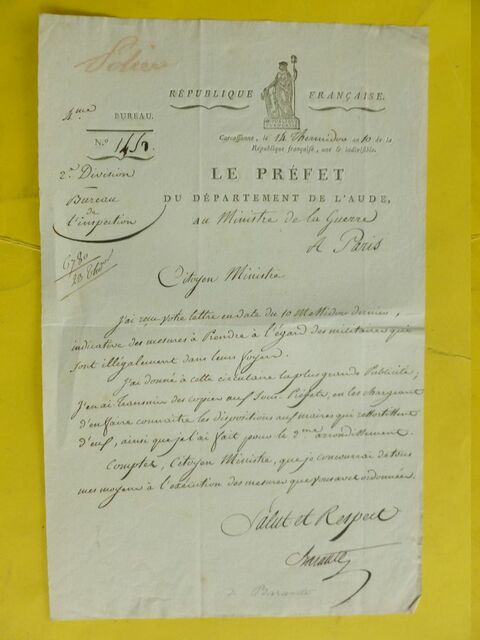 RÉPUBLIQUE FRANÇAISE.
4me
BUREAU.
N.º
Carcassonne, le 14 Thermidor an 10 de la
République française, une & indivisible.
2e Division
Bureau
de
l'inspection
LE PRÉFET
DU DÉPARTEMENT DE L'AUDE,
au Ministre de la Guerre
A Paris
6780
23
Citoyen Ministre
J'ai reçu votre lettre en date du 10 Messidor dernier,
indicative des mesures à Prendre à l'égard des militaires qui
sont illégalement dans leurs foyers.
J'ai donné à cette circulaire la plus grande Publicité;
J'en ai transmis des copies aux Sous-Préfets, en les chargeant
d'en faire connaitre les dispositions aux maires qui ressortissent
d'eux, ainsi que je l'ai fait pour le 2me arrondissement.
Comptez, Citoyen Ministre, que je concourrai de tous
mes moyens à l'exécution des mesures que vous avez ordonnées.
Salut et Respect
Barante
de Barante